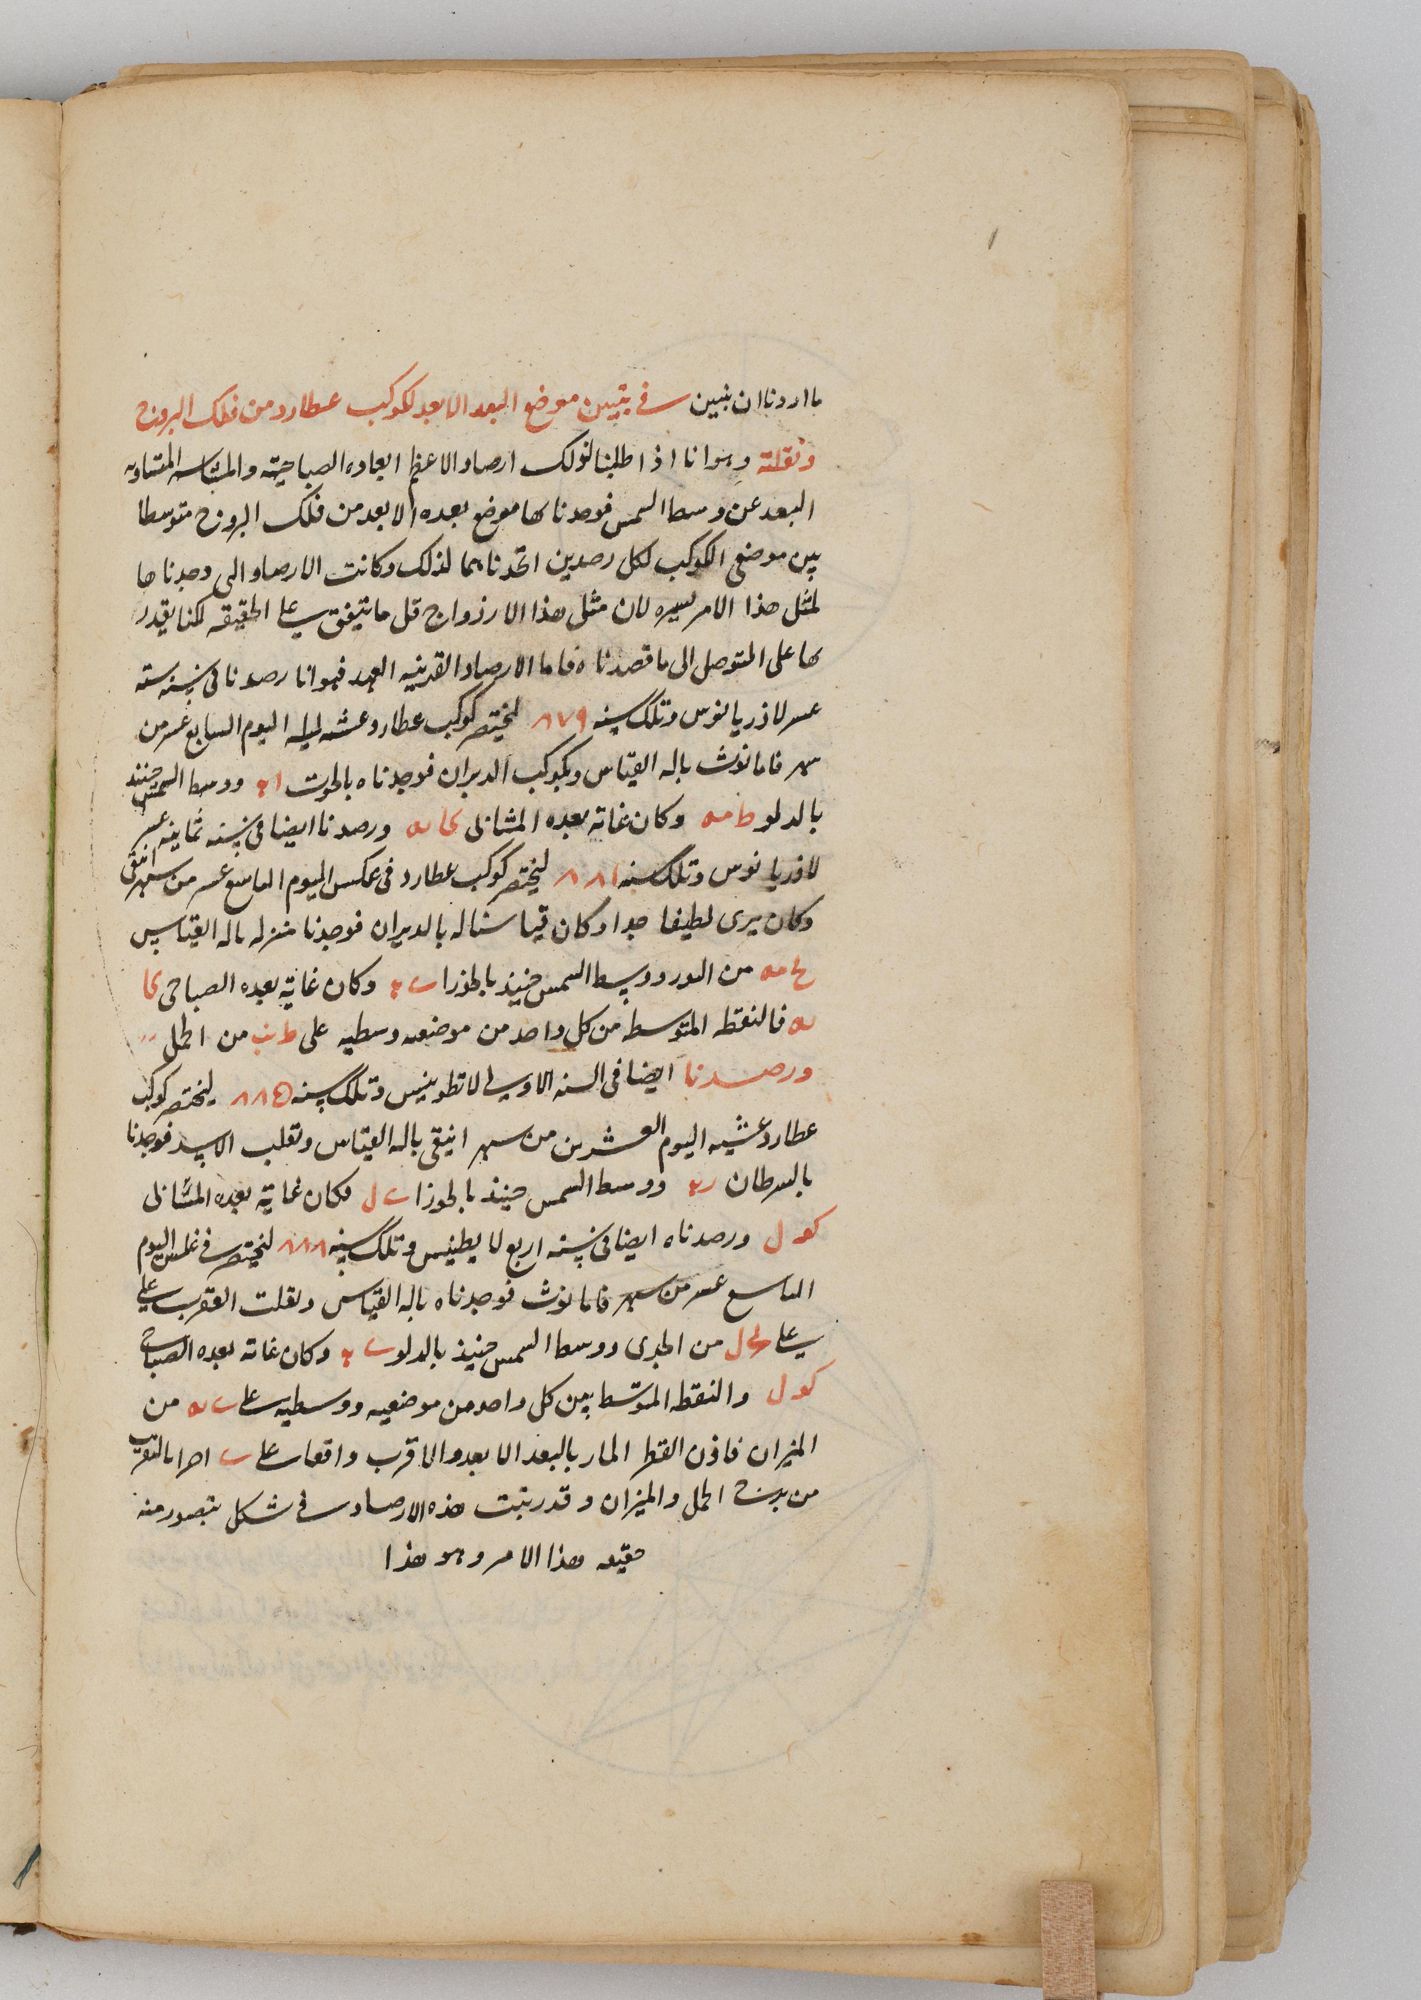 ما اردنا ان نبين في تبيين موضع البعد الابعد لكوكب عطارد من فلك البروج
ونقلته وهو انا اذا طلبنا لذلك ارصاد الاعظم ابعاده الصباحية والمسائيه المتساويه
البعد عن وسط الشمس فوجدنا بها موضع بعده الابعد من فلك البروج متوسطا
بين موضعى الكوكب لكل رصدين اتحدناهما لذلك وكانت الارصاد التى وجدناها
لمثل هذا الامر يسيره لان مثل هذا الازدواج قل ما يتفق على الحقيقه لكنا نقدر
بها على التوصل الى ما قصدناه فاما الارصاد القريبه العهد فهو انا رصدنا فى سنه سته
عسر لاذريانوس وتلك سنه ٨٧٩ لبختنصر كوكب عطارد عشيه ليله اليوم السابع عسر من
سهر فامانوث باله القياس وبكوكب الدبران فوجدناه بالحوت ا ٠ ووسط السمس حينئذ
بالدلو ط مه وكان غاية بعده المسائى كا يه ورصدنا ايضا فى سنه ثمانيه عسر
لاذريانوس وتلك سنه ٨٨١ لبختنصر كوكب عطارد فى غلس اليوم التاسع عسر من سهر ابيفى
وكان يرى لطيفا جدا وكان قياسنا له بالدبران فوجدنا منزله باله القياس
يح مه من الثور ووسط السمس حينئذ بالجوزا ى ٠ وكان غاية بعده الصباحى كا
يه فالنقطه المتوسطه من كل واحد من موضعيه وسطيه على ط نب من الحمل
ورصدنا ايضا فى السنه الاولى لانطونينس وتلك سنه ٨٨٥ لبختنصر كوكب
عطارد عشيه اليوم العشرين من سهر ابيفى باله القياس وبقلب الاسد فوجدنا
بالسرطان ز ٠ ووسط السمس حينئذ بالجوزا ى ل فكان غاية بعده المسائى
كو ل ورصدناه ايضا فى سنه اربع لانطينس وتلك سنه ٨٨٨ لبختنصر فى غلس اليوم
التاسع عسر من سهر فامانوث فوجدناه باله القياس وبقلب العقرب على
على يح ل من الجدى ووسط السمس حينئذ بالدلو ى ٠ وكان غايه بعده الصباحى
كو ل والنقطه المتوسطه بين كل واحد من موضعيه ووسطيه على ى يه من
الميزان فاذن القطر المار بالبعد الابعد والاقرب واقعا على ى اجزا بالتقريب
من برجى الحمل والميزان وقد رتبت هذه الارصاد فى شكل يتصور منه
حقيقه هذا الامر وهو هذا